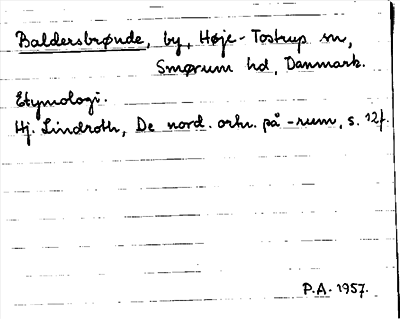 Baldersbrønde, by, Høje-Tostrup sn,
Smørum hd, Danmark.
Etymologi.
Hj. Lindroth, De nord. ortn. på -rum, s. 12f.
P.A. 1957.